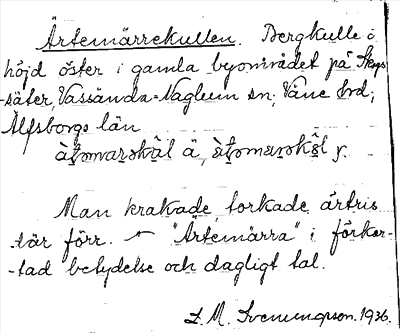 Ärtemärrekullen. Bergkulle å
höjd öster i gamla byområdet på Skogs-
-säter, Vassända-Naglum sn; Väne hrd;
Älfsborgs län
Man krakade, torkade ärtris
där förr. "Ärtemärra" i förkor-
-tad betydelse och dagligt tal.
L. M. Svenungson. 1936.